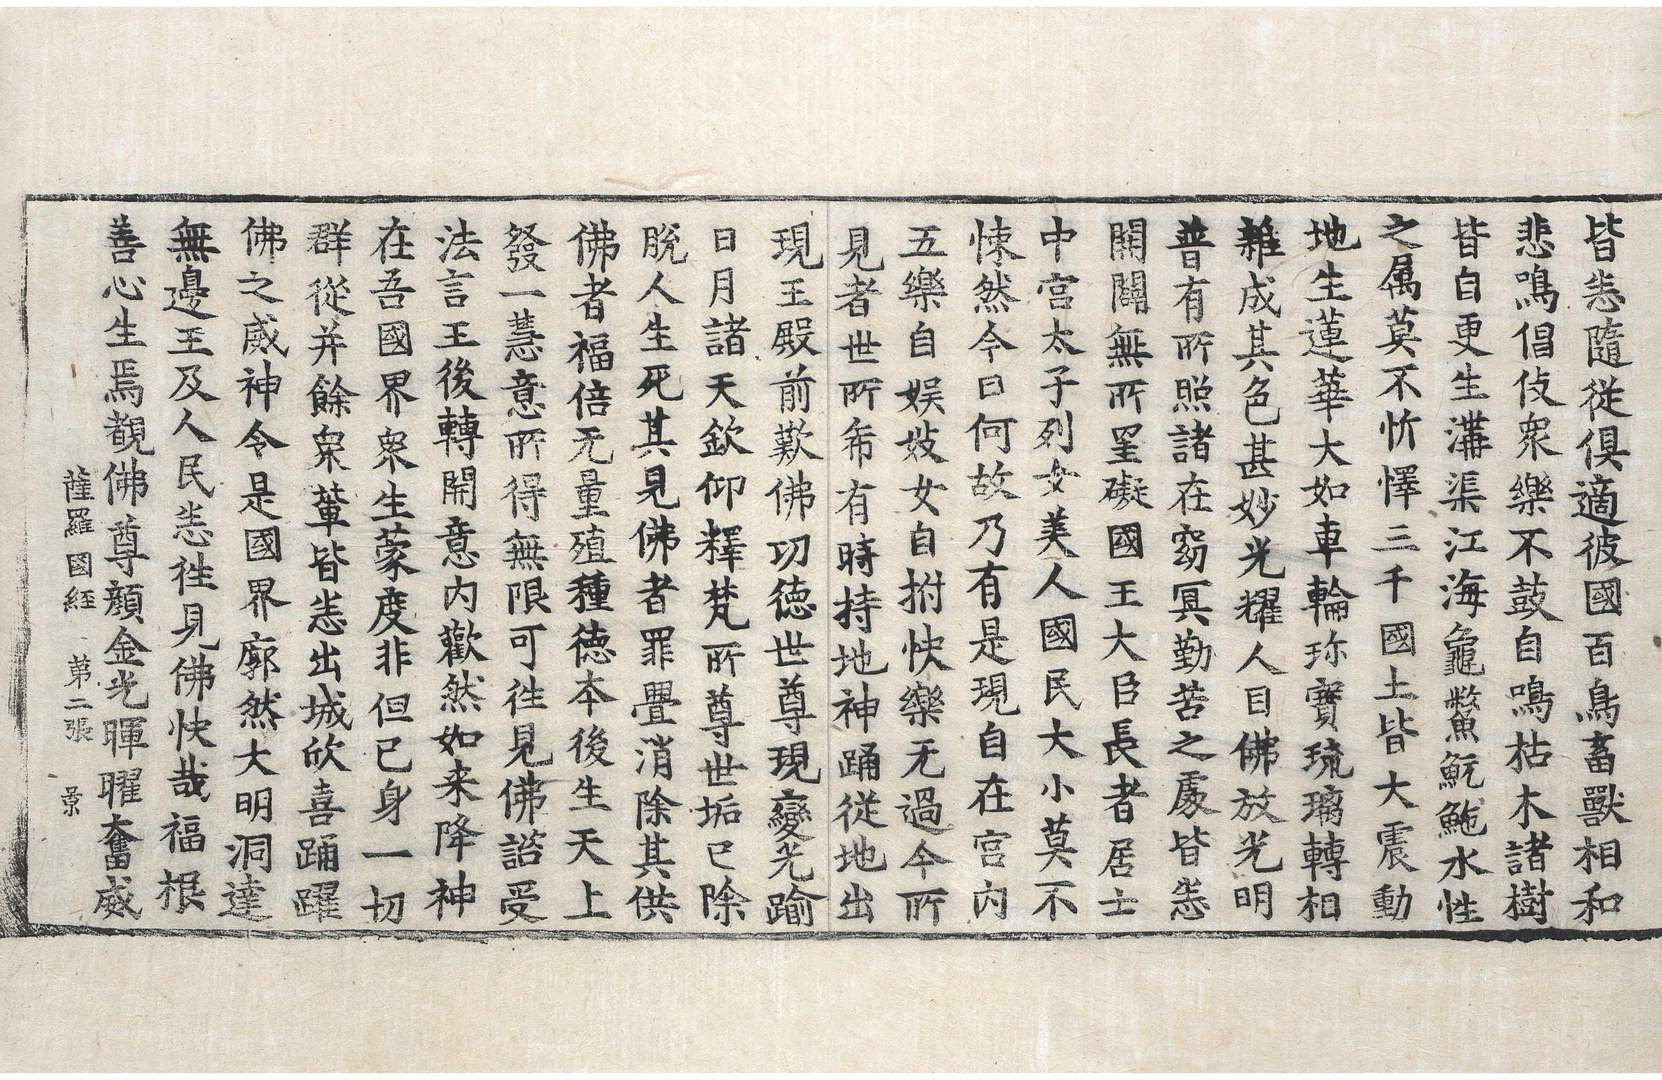 皆悉隨從俱適彼國百鳥畜獸相和
悲鳴倡伎衆樂不鼓自鳴枯木諸樹
皆自更生溝渠江海龜鱉魭鮑水性
之属莫不忻懌三千國土皆大震動
地生蓮華大如車輪珎寳琉璃轉相
雜成其色甚妙光耀人目佛放光明
普有所照諸在窈冥勤苦之處皆悉
開闢無所罣礙國王大臣長者居士
中宮太子列女美人國民大小莫不
悚然今日何故乃有是現自在宮内
五樂自娛妓女自拊快樂无過今所
見者世所希有時持地神踊從地出
現王殿前歎佛功徳世尊現變光踰
日月諸天欽仰釋梵所尊世垢已除
脫人生死其見佛者罪疊消除其供
佛者福倍无量殖種徳本後生天上
發一慧意所得無限可徃見佛諮受
法言王後轉開意内歡然如来降神
在吾國界衆生蒙度非但已身一切
群從并餘衆輩皆悉出城欣喜踊躍
佛之威神令是國界廓然大明洞達
無邊王及人民悉徃見佛快哉福根
善心生焉覩佛尊顏金光暉曜奮威
薩羅國経 第二張 景